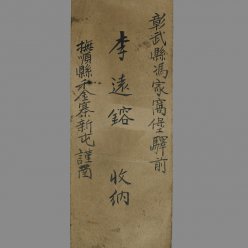 彰武縣馮家窩堡驛前
李遠鎔 收納
撫順縣千金寨新屯謹函